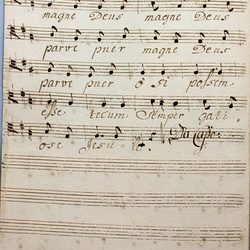 magne Deus magne Deus
parve puer magne Deus
parve puer o si possem
esse tecum Semper gati
ose Jesu Da Capo